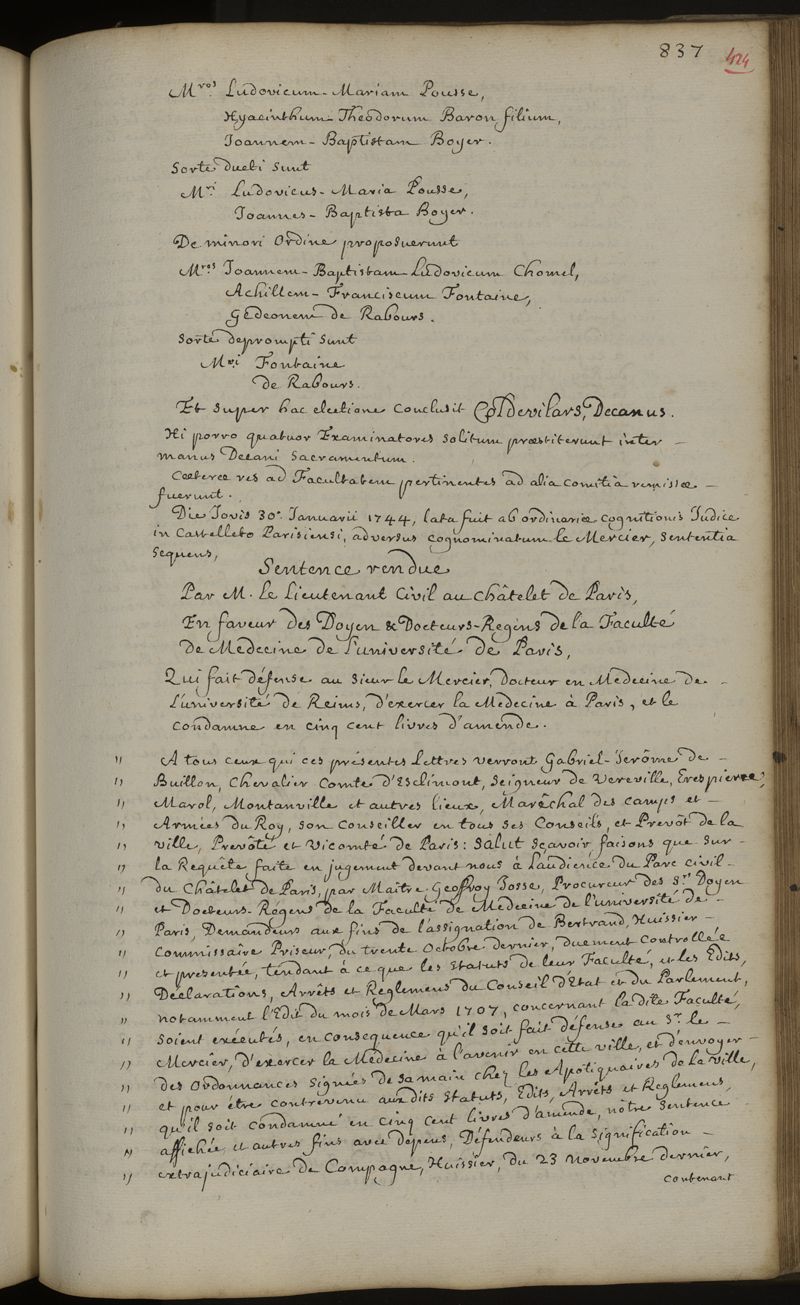 837 424
Mros Ludovicum-Mariam Pousse,
Hyacinthum-Theodorum Baron filium,
Joannem-Baptistam Boyer.
Sorte ducti sunt
Mri Ludovicus-Maria Pousse,
Joannes-Baptista Boyer.
De minori Ordine proposuerunt
Mros Joannem-Baptistam-Ludovicum Chomel,
Achillem-Franciscum Fontaine,
Gedeonem De Rabours.
Sorte deprompti sunt
Mri Fontaine
De Rabours.
Et super hac electione conclusit Col De vilars, Decanus.
Hi porro quatuor Examinatores solitum præstiterunt inter
manus Decani Sacramentum.
Cæteræ res ad Facultatem pertinentes ad alia comitia remissæ
fuerunt.
Die Jovis 30a. Januarii 1744, lata fuit ab ordinariæ cognitionis Judice
in Castelleto Parisiensi, adversus cognominatum le Mercier, Sententia
sequens,
Sentence rendue
Par M. Le Lieutenant Civil au Châtelet de Paris,
En faveur des Doyen & Docteurs-Regens de la Faculté
De Medecine de l'université de Paris,
Qui fait défense au Sieur le Mercier, Docteur en Medecine de
l'université de Reims, d'exercer la Medecine à Paris, et le
condamne en cinq cent livres d'amende.
" A tous ceux qui ces présentes Lettres verront Gabriel-Jerôme de
" Buillon, Chevalier Comte d'Esclimont, Seigneur de Vereville, Crespierre,
" Marol, Montanville et autres lieux, Maréchal des camps et
" Armées du Roy, son Conseiller en tous ses Conseils, et Prevôt de la
" ville, Prevôté et Vicomté de Paris: Salut sçavoir faisons que sur
" la Requête faite en jugement devant nous à l'audience du Parc civil
" du Châtelet de Paris, par Maître Geoffroy Josse, Procureur des Srs Doyen
" et Docteurs-Régens de la Faculté de Medecine de l'université de
" Paris, Demandeurs aux fins de l'assignation de Bertrand, Huissier
" Commissaire Priseur, du trente Octobre dernier, duement controllée
" et presentée, tendant à ce que les Statuts de leur Faculté, et les Edits,
" Déclarations, Arrêts et Reglemens du Conseil d'Etat et du Parlement,
" notamment l'Edit du mois de Mars 1707, concernant ladite Faculté,
" soient executés, en consequence qu'il soit fait défense au Sr. le
" Mercier, d'exercer la Médecine à l'avenir en cette ville, et d'envoyer
" des Ordonnances signées de sa main chez les Apotiquaires de la ville,
" et pour être contrevenu auxdits Statuts, Edits, Arrêts et Reglemens,
" qu'il soit condamné en cinq cent livres d'amende, nôtre Sentence
" affichée et autres fins avec dépens, Défendeurs à la signification
" extrajudiciaire de Compagne, Huissier, du 23 novembre dernier,
contenant